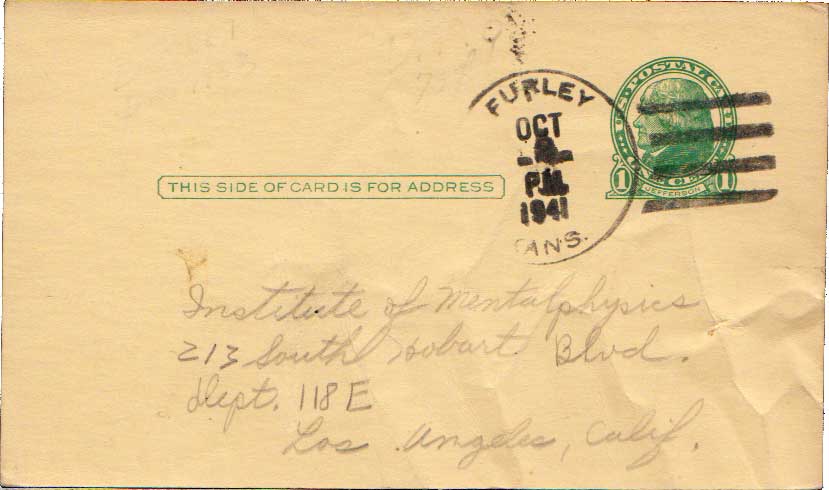 FURLEY
OCT
PM
1941
ANS.
U.S. POSTAL CARD
1 JEFFERSON 1
THIS SIDE OF CARD IS FOR ADDRESS
Institute of Mentalphysics
213 South Hobart Blvd.
Dept. 118E
Los Angeles, Calif.